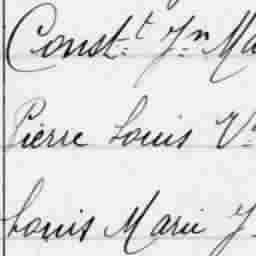 Const.t Jn Ma
Pierre Louis V.
Louis Marie J.